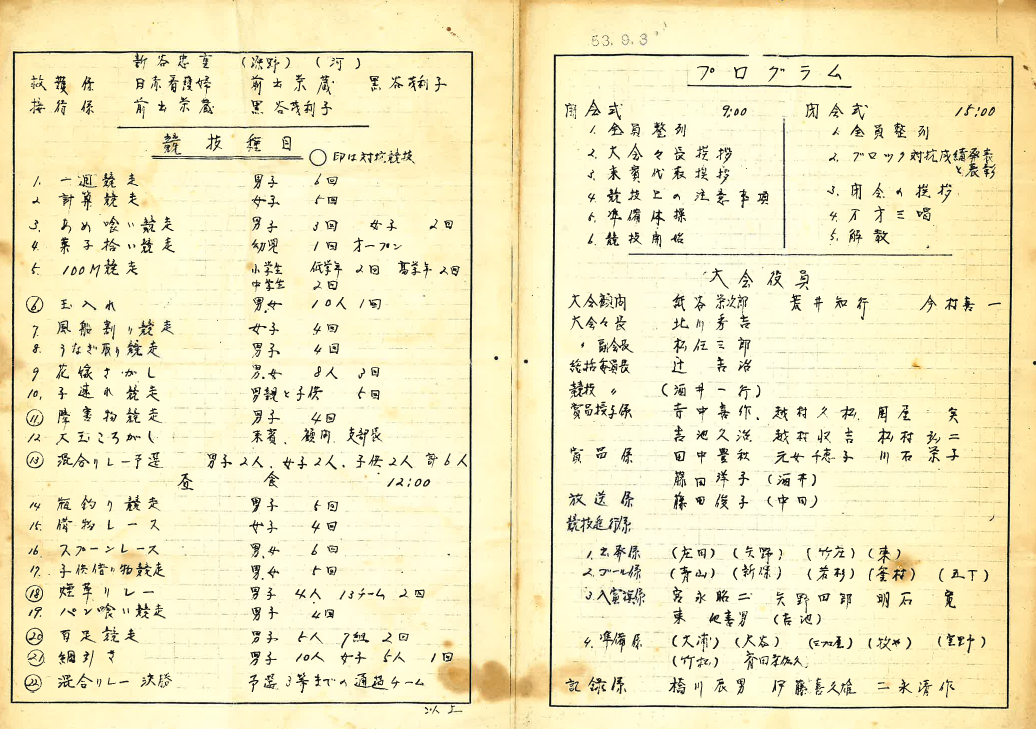 53.9.3
プログラム
開会式 9:00
1. 全員整列
2. 大会々長挨拶
3. 来賓代表挨拶
4. 競技上の注意事項
5. 準備体操
6. 競技開始
閉会式 15:00
1. 全員整列
2. ブロック対抗成績発表
と表彰
3. 閉会の挨拶
4. 万才三唱
5. 解散
大会役員
大会顧問 紙谷栄次郎 荒井知行 今村喜一
大会々長 北川秀吉
〃 副会長 松任三郎
総括委員長 辻 吉治
競技 〃 (酒井一行)
賞品授与係 寺中喜作、越村久松 岡屋
吉池久治 越村収吉 松村弘二
賞品係 田中豊秋 元女千恵子 川石栄子
藤田洋子 (酒井)
放送係 藤田俊子 (中田)
競技進行係
1. 出発係 (庄田) (矢野) (竹庄) (東)
2. ゴール係 (青山) (新保) (若杉) (釜村) (五丁)
3. 入賞旗係 宮永昭二 矢野四郎 明石 寛
東 他喜男 (吉池)
4. 準備係 (大浦) (大谷) (三加屋)
(竹松)
記録係 橋川辰男 伊藤喜久雄 二永清作
新谷忠重 (浜野) (河)
救護係 日赤看護婦 前出栄蔵 黒谷茂利子
接待係 前出栄蔵 黒谷茂利子
競技種目
○印は対抗競技
1. 一週競走 男子 6回
2. 計算競走 女子 5回
3. あめ喰い競走 男子 3回 女子 2回
4. 菓子拾い競走 幼児 1回 オープン
5. 100M競走 小学生 低学年 2回 高学年 2回
中学生 2回
⑥ 玉入れ 男.女 10人 1回
7. 風船割り競走 女子 4回
8. うなぎ取り競走 男子 4回
9. 花嫁さがし 男.女 8人 3回
10. 子連れ競走 男親と子供 5回
⑪ 障害物競走 男子 4回
12. 大玉ころがし 来賓、顧問、支部長
⑬ 混合リレー予選 男子2人、女子2人、子供2人 計6人
昼食 12:00
14. 瓶釣り競走 男子 5回
15. 借物レース 女子 4回
16. スプーンレース 男.女 6回
17. 子供借り物競走 男.女 5回
⑱ 煙草リレー 男子 4人 13チーム 2回
19. パン喰い競走 男子 4回
⑳ 百足競走 男子 5人 7組 2回
㉑ 綱引き 男子 10人 女子 5人 1回
㉒ 混合リレー決勝 予選3等までの通過チーム
以上